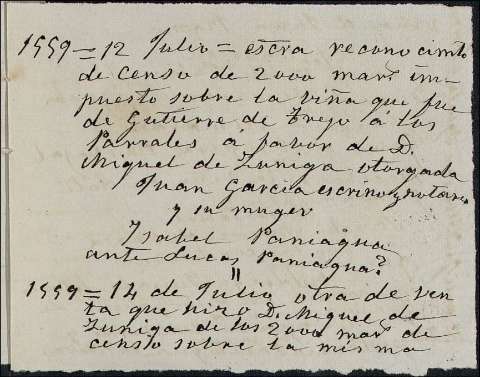 1559 = 12 Julio = escra reconocimto
de censo de 2000 mars im-
puesto sobre la viña que fue
de Gutierre de Trejo á los
Parrales á favor de D.
Miguel de Zuniga otorgada
Juan Garcia escrino y notario
y su muger
Isabel Paniagua
ante Lucas Paniagua?
"
1559 = 14 de Julio otra de ven
ta que hizo D. Miguel de
Zuniga de los 2000 mars de
censo sobre la misma